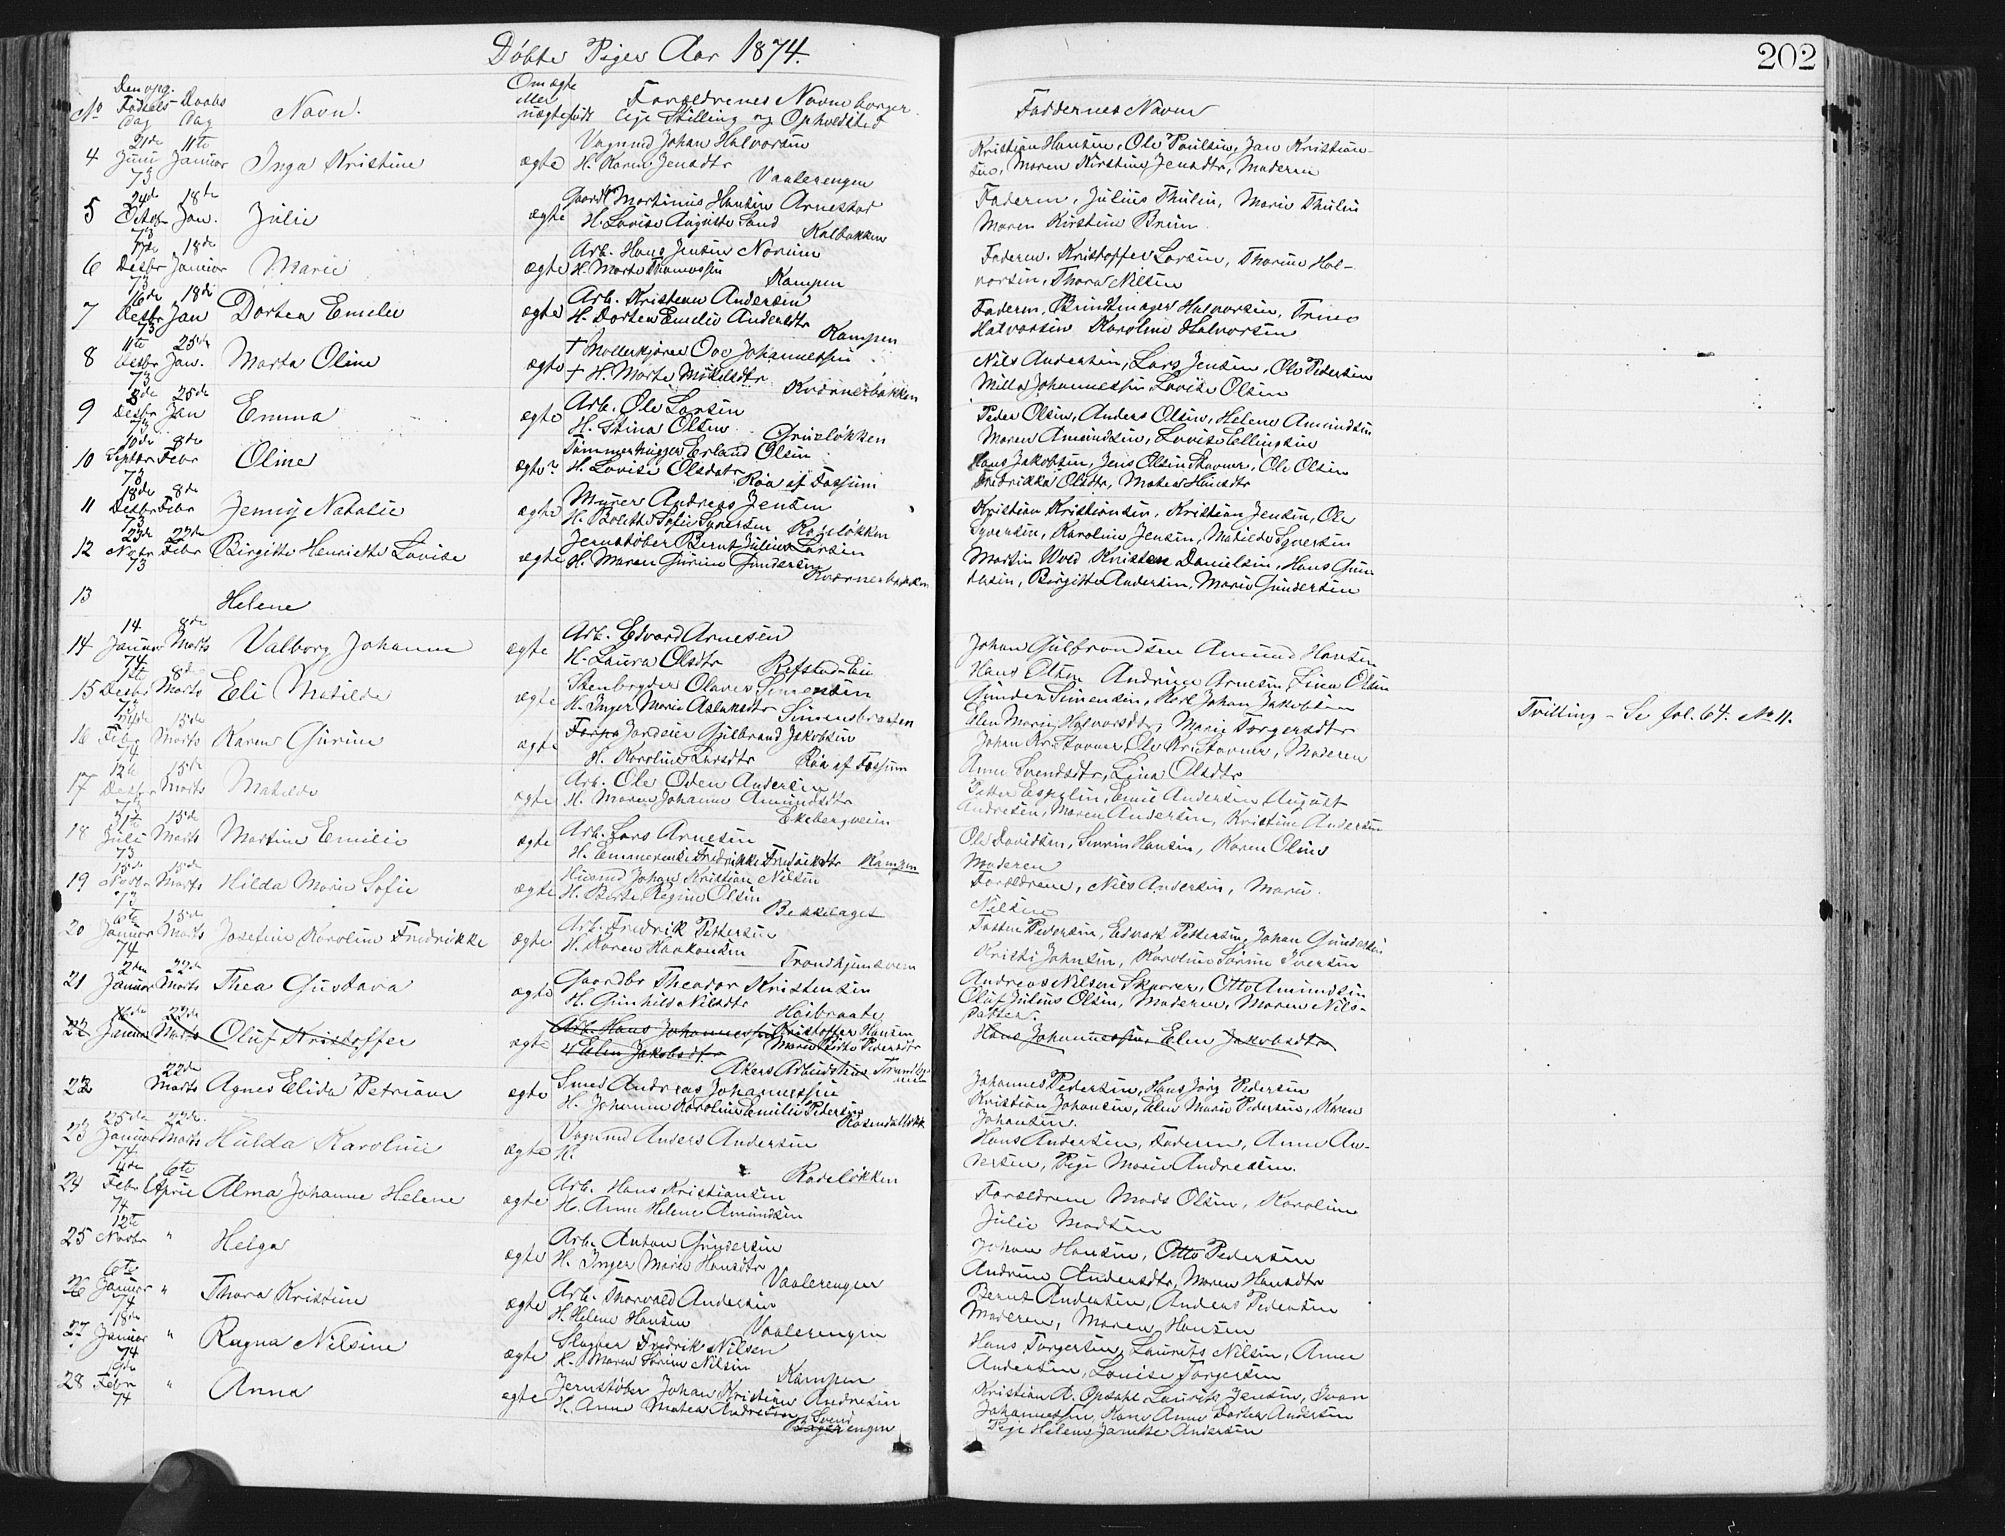 Døbte Piger Aar 1874.
202
No
Den opg. Fødsels Dag
Daabs Dag
Navn.
Om ægte eller uægtefødt
Forældrenes Navn borger
lige Stilling og Opholdsted
Faddernes Navn
4 21de Juni 73 11te Januar Inga Kristine ægte Vognmd Johan Halvorsen
H. Karen Jensdtr
Vaalerengen
Kristian Hansen, Ole Paulsen, Jan Kristian-
sen, Maren Kirstine Jensdtr, Moderen
5 24de Octob 73 18de Jan. Julie ægte Gaardbr Martinus Hansen Arnestad
H. Lovise Auguste Sand
Kalbakken
Faderen, Julius Thulin, Marie Thulin
Maren Kirstine Bruun
6 Desbr 73 18de Januar Marie ægte Arb. Hans Jensen Norum
H. Marte Thomassen
Kampen
Faderen, Kristoffer Larsen, Thorine Hal-
vorsen, Thora Nilsen
7 16de Desbr 73 18de Jan Dortea Emelie ægte Arb. Kristian Andersen
H. Dortea Emelie Andersdtr
Kampen
Faderen, Halvorsen, Trine
Halvorsen Karoline Halvorsen
8 11te Desbr 73 25de Jan. Marta Oline ægte † Møllerkjører Ove Johannessen
† H. Marte Mikelsdtr
Kværnerbakken
Nils Andersen, Lars Jensen, Ole Pedersen
Milla Johannessen Lovise Olsen
9 8de Desbr 73 25de Jan Emma ægte Arb. Ole Larsen
H. Stina Olsen
Grueløkken
Peder Olsen, Anders Olsen, Helene Amundsen
Maren Amundsen, Lovise Ellingsen
10 10de Septbr 73 8de Febr Oline ægte Tømmerhugger Erland Olsen
H. Lovise Olsdatr
Røa af Fossum
Hans Jakobsen, Jens Olsen Ole Olsen
Fredrikka Olsdtr, Matea Hansdtr
11 18de Desbr 73 8de Febr Jenny Natalie ægte Murer Andreas Jensen
H. Bolette Sofie Syversen
Rodeløkken
Kristian Kristiansen, Kristian Jensen, Ole
Syversen, Karoline Jensen, Matilde Syversen
12 23de Novbr 73 22de Febr Birgitte Henriette Lovise ægte Jernstøber Bernt Julius Larsen
H. Maren Gurine Gundersen
Kværnerbakken
Martin Wold Kristen Danielsen, Hans Gun
dersen, Birgitte Andersen, Marie Gundersen
13 Helene
14 14 Januar 74 8de Marts Valborg Johanne ægte Arb. Edvard Arnesen
H. Laura Olsdtr
Refstad Lii
Johan Gulbrandsen Amund Hansen
Hans Olsen Andrine Arnesen, Lina Olsen
15 Desbr 73 8de Marts Eli Matilde ægte Stenbryder Olaves Simensen
H. Inger Marie Aslaksdtr
Simensbraaten
Gunder Simensen, Karl Johan Jakobsen
Elen Marie Halvorsdtr, Marie Torgersdtr
Tvilling - Se fol. 64. No 11.
16 Febr 15de Marts Karen Gurine ægte Jordeier Gulbrand Jakobsen
H. Karoline Larsdtr
Røa af Fossum
Johan Kristoffer, Ole Kristoffer, Moderen
Anne Svendsdtr, Lina Olsdtr
17 12te Desbr 73 15de Marts Matilde ægte Arb. Ole Oden Andersen
H. Maren Johanne Amundsdtr
Ekebergveien
Petter Espelin, Emil Andersen August
Andresen, Maren Andersen, Kristine Andersen
18 Juli 73 15de Marts Martine Emilie ægte Arb. Lars Arnesen
H. Emmerensi Fredrikke Fredriksdtr Kampen
Ole Davidsen, Severin Hansen, Karen Oline
Moderen
19 Novbr 73 15de Marts Hilda Marie Sofie ægte Husmd Johan Kristian Nilsen
H. Berte Regine Olsen
Bekkelaget
Forældrene, Nils Andersen, Marie
Nilsen
20 6te Januar 74 15de Marts Josefine Karoline Fredrikke ægte Arb. Fredrik Pettersen
H. Karen Haakonsen
Trondhjemsveien
Tosten Pedersen, Edvart Pettersen, Johan Gundersen
Kristi Johnsen, Karoline Sørine Iversen
21 2den Januar 22de Marts Thea Gustava ægte Gaardbr Theodor Kristensen
H. Gunhild Nilsdtr
Høibraaten
Andreas Nilsen Otto Amundsen
Oluf Julius Olsen, Moderen, Maren Nils-
datter.
22 Januar 22de Marts Oluf Kristoffer ægte Arb. Hans Johannessen Kristoffer Hansen
H Elen Jakobsdtr Marie Pedersdtr
Akers Arbeidshus
Hans Johannessen, Elen Jakobsdtr
22 22de Marts Agnes Elida Petriane ægte Smed Andreas Johannessen
H. Johanne Karoline Emilie Pedersen
Johannes Pedersen, Hans Jørg Pedersen
Kristian Johansen, Elen Marie Pedersen, Karen
Johansen.
23 25de Januar 74 22de Marts Hulda Karoline ægte Vognmd Anders Andersen
H.
Rodeløkken
Hans Andersen, Faderen, Anne An-
dersen, Pige Marie Andresen.
24 4de Febr 74 6te April Alma Johanne Helene ægte Arb. Hans Kristiansen
H. Anne Helene Amundsen
Forældrene Mads Olsen, Karoline
Julie Madsen
25 12te Novbr " Helga ægte Arb. Anton Gundersen
H. Inger Marie Hansdtr
Vaalerengen
Johan Hansen, Otto Pedersen
Andrine Andersdtr, Maren Hansdtr
26 6te Januar 74 " Thora Kristine ægte Arb. Thorvald Andersen
H. Helene Hansen
Vaalerengen
Bernt Andersen, Anders Pedersen
Moderen, Maren Hansen
27 18de Januar 74 " Ragna Nilsine ægte Slagter Fredrik Nilsen
H. Maren Sørine Nilsen
Kampen
Hans Torgersen, Laurits Nilsen, Anne
Andersen, Lovise Torgersen
28 Febr 74 " Anna ægte Jernstøber Johan Kristian Andresen
H. Anne Matea Andresen
Kristian A. Opdahl, Laurits Jensen, Ivar
Johannessen, Kone Anne Dortea Andersen
Pige Helene Janette Andersen